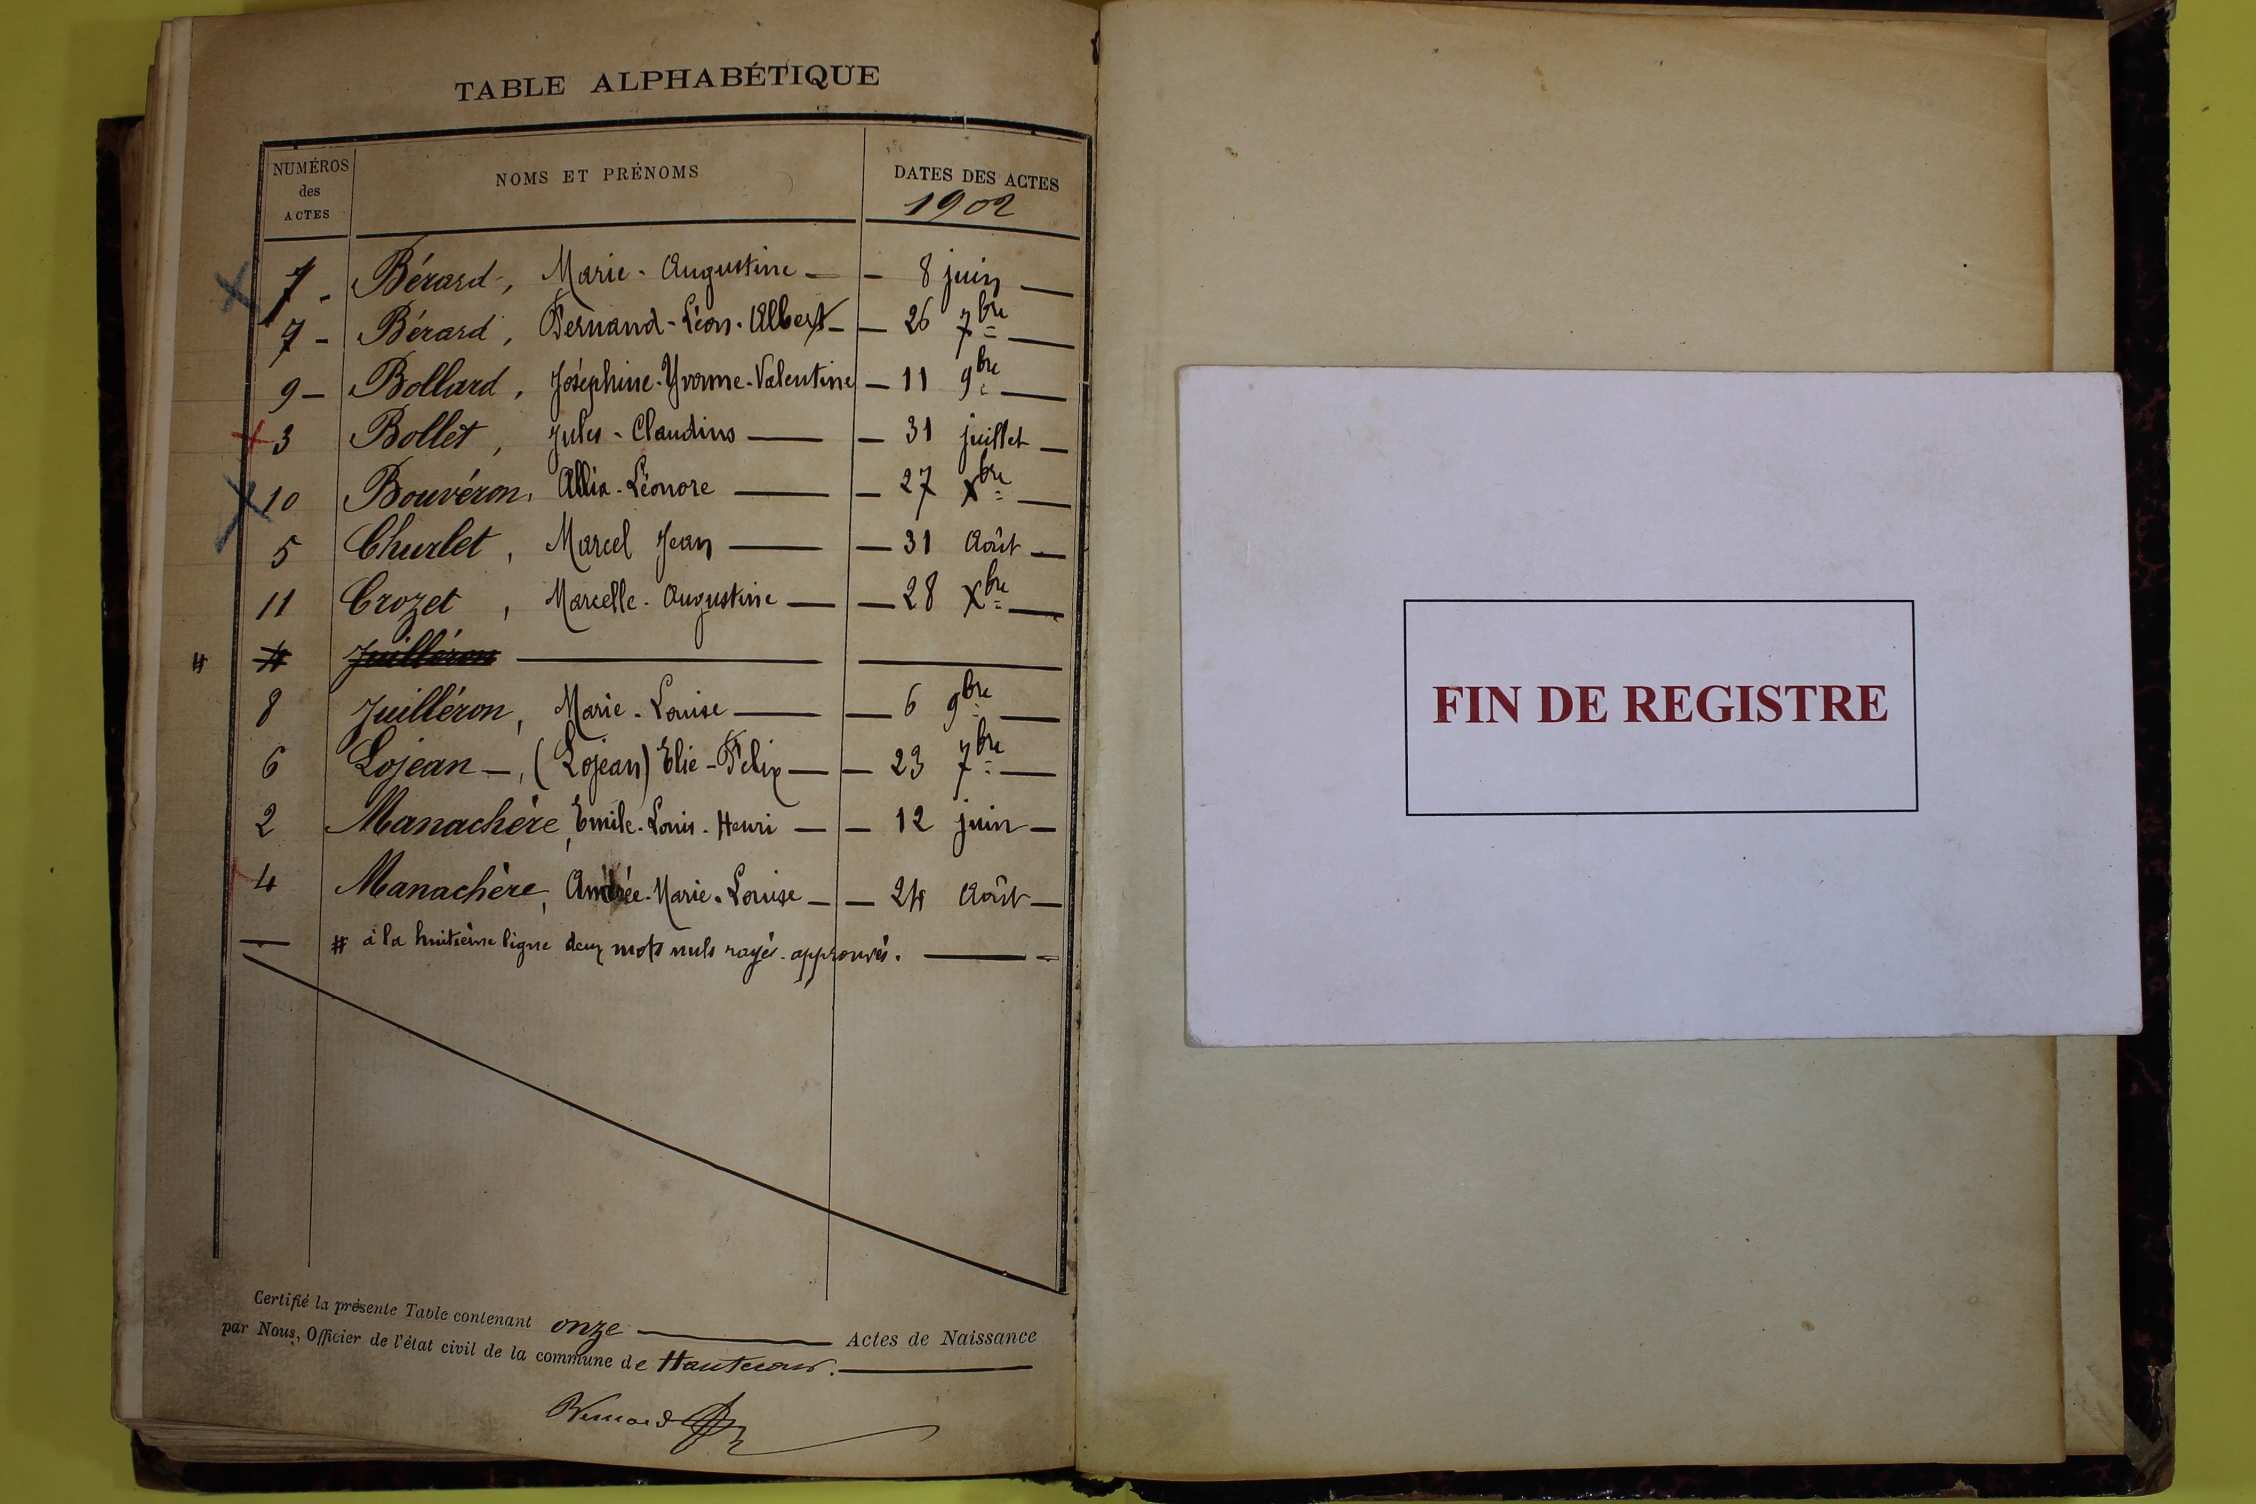 TABLE ALPHABÉTIQUE
NUMÉROS des ACTES NOMS ET PRÉNOMS DATES DES ACTES
1902
1 - Bérard, Marie - Augustine — — 8 juin —
7 - Bérard, Fernand - Léon - Albert — — 26 7bre —
9 - Bollard, Joséphine - Yvonne - Valentine — 11 9bre —
3 Bollet, Jules - Claudius — — 31 juillet —
10 Bouvéron, Allix - Léonore — — 27 Xbre —
5 Churlet, Marcel Jean — — 31 Août —
11 Crozet, Marcelle - Augustine — — 28 Xbre —
# Juilléron
8 Juilléron, Marie - Louise — — 6 9bre —
6 Lojean —, (Lojean) Elie - Felix — — 23 7bre —
2 Manachère, Emile - Louis - Henri — — 12 juin —
4 Manachère, Andrée - Marie - Louise — — 24 Août —
# à la huitième ligne deux mots nuls rayés approuvés. —
Certifié la présente Table contenant onze — Actes de Naissance
par Nous, Officier de l'état civil de la commune de Hautecour. —
FIN DE REGISTRE